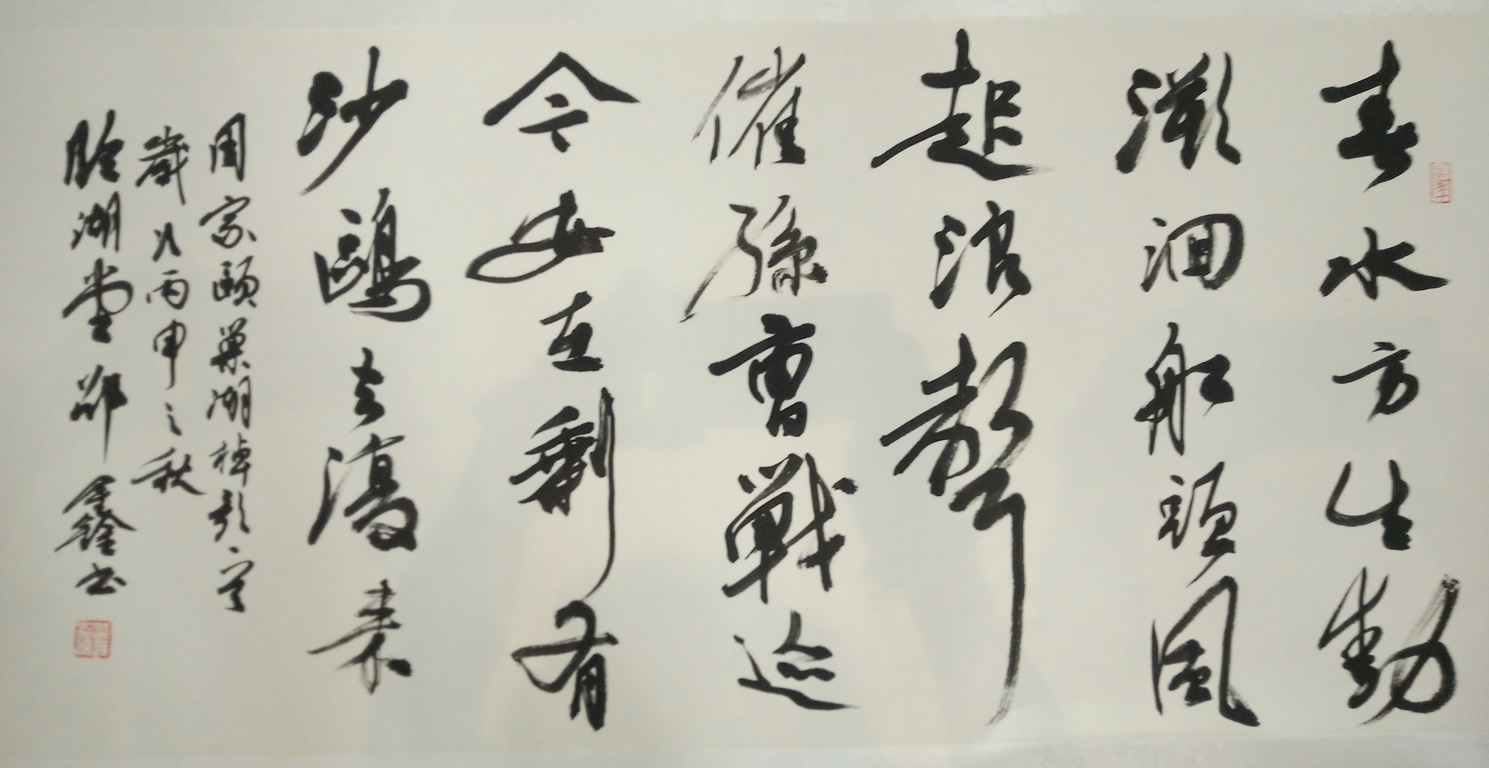 春水方生動
洄船頭風
起浪聲
催孫曹戰迹
今安在剩有
沙鷗去復來
周家頤巢湖棹
歲次丙申之秋
臨湖堂鑫書